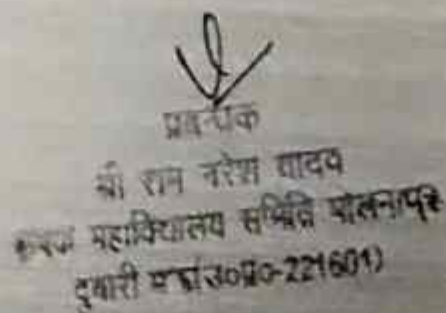 प्रबन्धक
श्री राम नरेश यादव
कृषक महाविद्यालय समिति
दुबारी मऊ(उ०प्र०-221601)